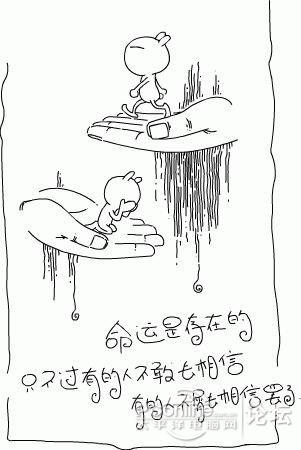 命运是存在的
只不过有的人不敢去相信
有的人不屑去相信罢了
pconline 论坛
太平洋电脑网